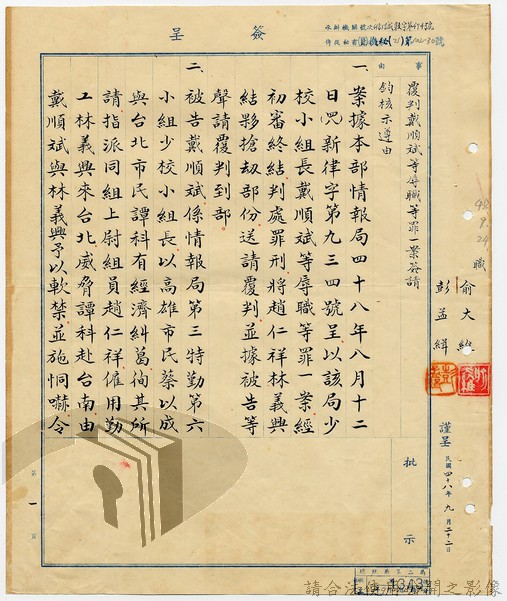 簽呈
事由
覆判戴順斌等辱職等罪一案簽請
鈞核示遵由
職
俞大維
彭孟緝
謹呈
民國四十八年九月二十二日
48.9.24
批示
一、案據本部情報局四十八年八月十二
日(四八)新律字第九三四號呈以該局少
校小組長戴順斌等辱職等罪一案經
初審終結判處罪刑將趙仁祥林義興
結夥搶劫部份送請覆判並據被告等
聲請覆判到部
二、被告戴順斌係情報局第三特勤第六
小組少校小組長以高雄市民蔡以成
與台北市民譚科有經濟糾葛徇其所
請指派同組上尉組員趙仁祥僱用勤
工林義興來台北威脅譚科赴台南由
戴順斌與林義興予以軟禁並施恫嚇令
第一頁
請合法使用公開之影像